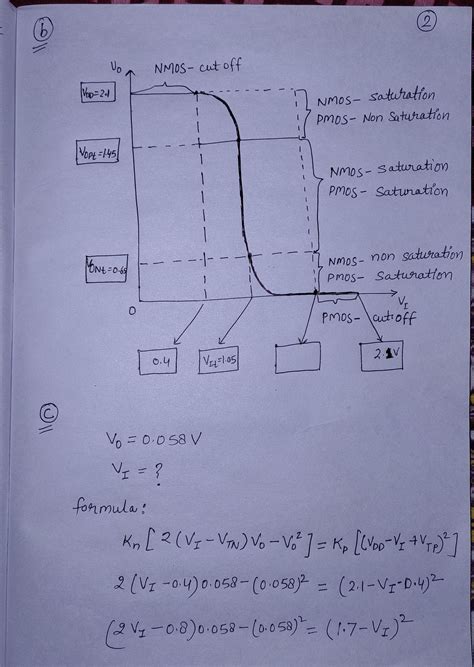 (b)
(2)
Vo
NMOS - cut off
VDD=2.1
NMOS - Saturation
PMOS - Non Saturation
VOPt=1.45
NMOS - Saturation
PMOS - Saturation
VONt=0.65
NMOS - non saturation
PMOS - Saturation
0
VI
PMOS - cut off
0.4
VIt=1.05
2.1V
(c)
Vo = 0.058 V
VI = ?
formula:
Kn [ 2 (VI - VTN) Vo - Vo² ] = Kp [(VDD - VI + VTP)²]
2 (VI - 0.4) 0.058 - (0.058)² = (2.1 - VI - 0.4)²
(2 VI - 0.8) 0.058 - (0.058)² = (1.7 - VI)²